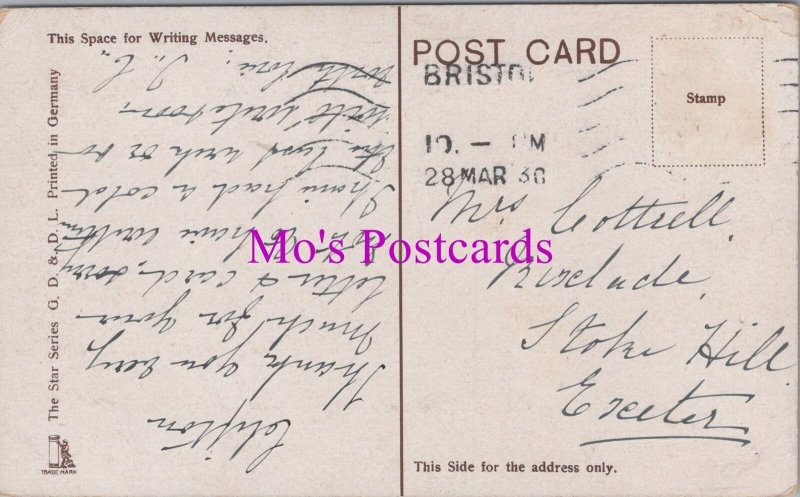 This Space for Writing Messages.
POST CARD
Stamp
BRISTOL
10. — PM
28 MAR 30
The Star Series G. D. & D. L. Printed in Germany
Clifton
Thank you very
much for your
letter & card, sorry
not to have written
I have had a cold
this last week or so
will write soon
with love.
Mrs Cottrell,
Stoke Hill
Exeter
Mo's Postcards
TRADE MARK
This Side for the address only.